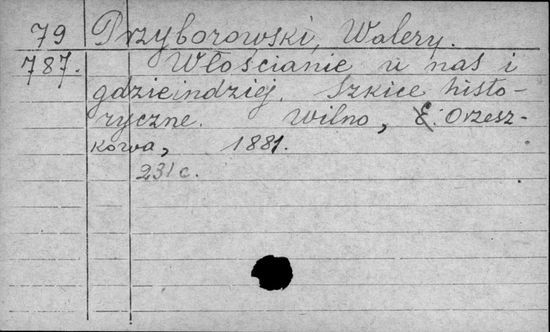 79 Przyborowski, Walery.
787. Włościanie u nas i
gdzieindziej. Szkice histo-
ryczne. Wilno, E. Orzesz-
kowa, 1881.
231 c.